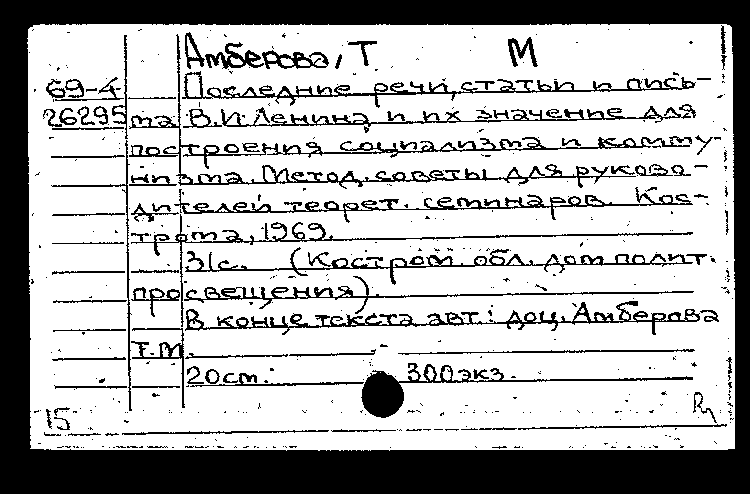 Амберова, Т М
69-4 Последние речи, статьи и пись-
26295 ма В.И. Ленина и их значение для
построения социализма и комму-
низма. Метод. советы для руково-
дителей теорет. семинаров. Кос-
трома, 1969.
31с. (Костром. обл. дом полит.
просвещения).
В конце текста авт.: доц. Амберова
Т.М.
20см. 300экз.
15